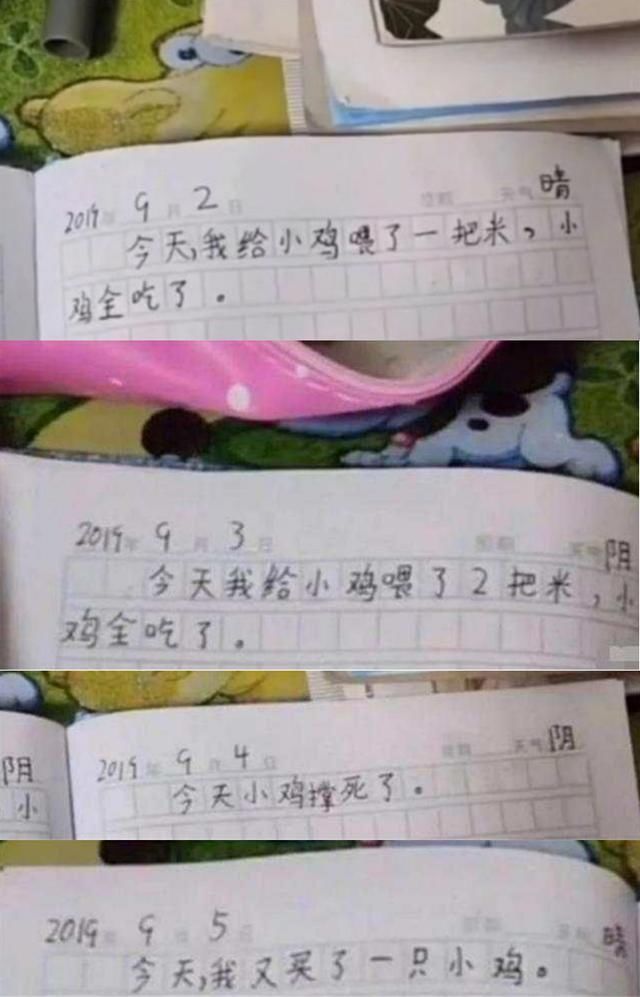 2019年 9月 2日 天气 晴
今天,我给小鸡喂了一把米,小
鸡全吃了。
2019年 9月 3日 星期 天气 阴
今天我给小鸡喂了2把米,小
鸡全吃了。
阴
小
2019年 9月 4日 星期 天气 阴
今天小鸡撑死了。
2019年 9月 5日 星期 天气 晴
今天,我又买了一只小鸡。